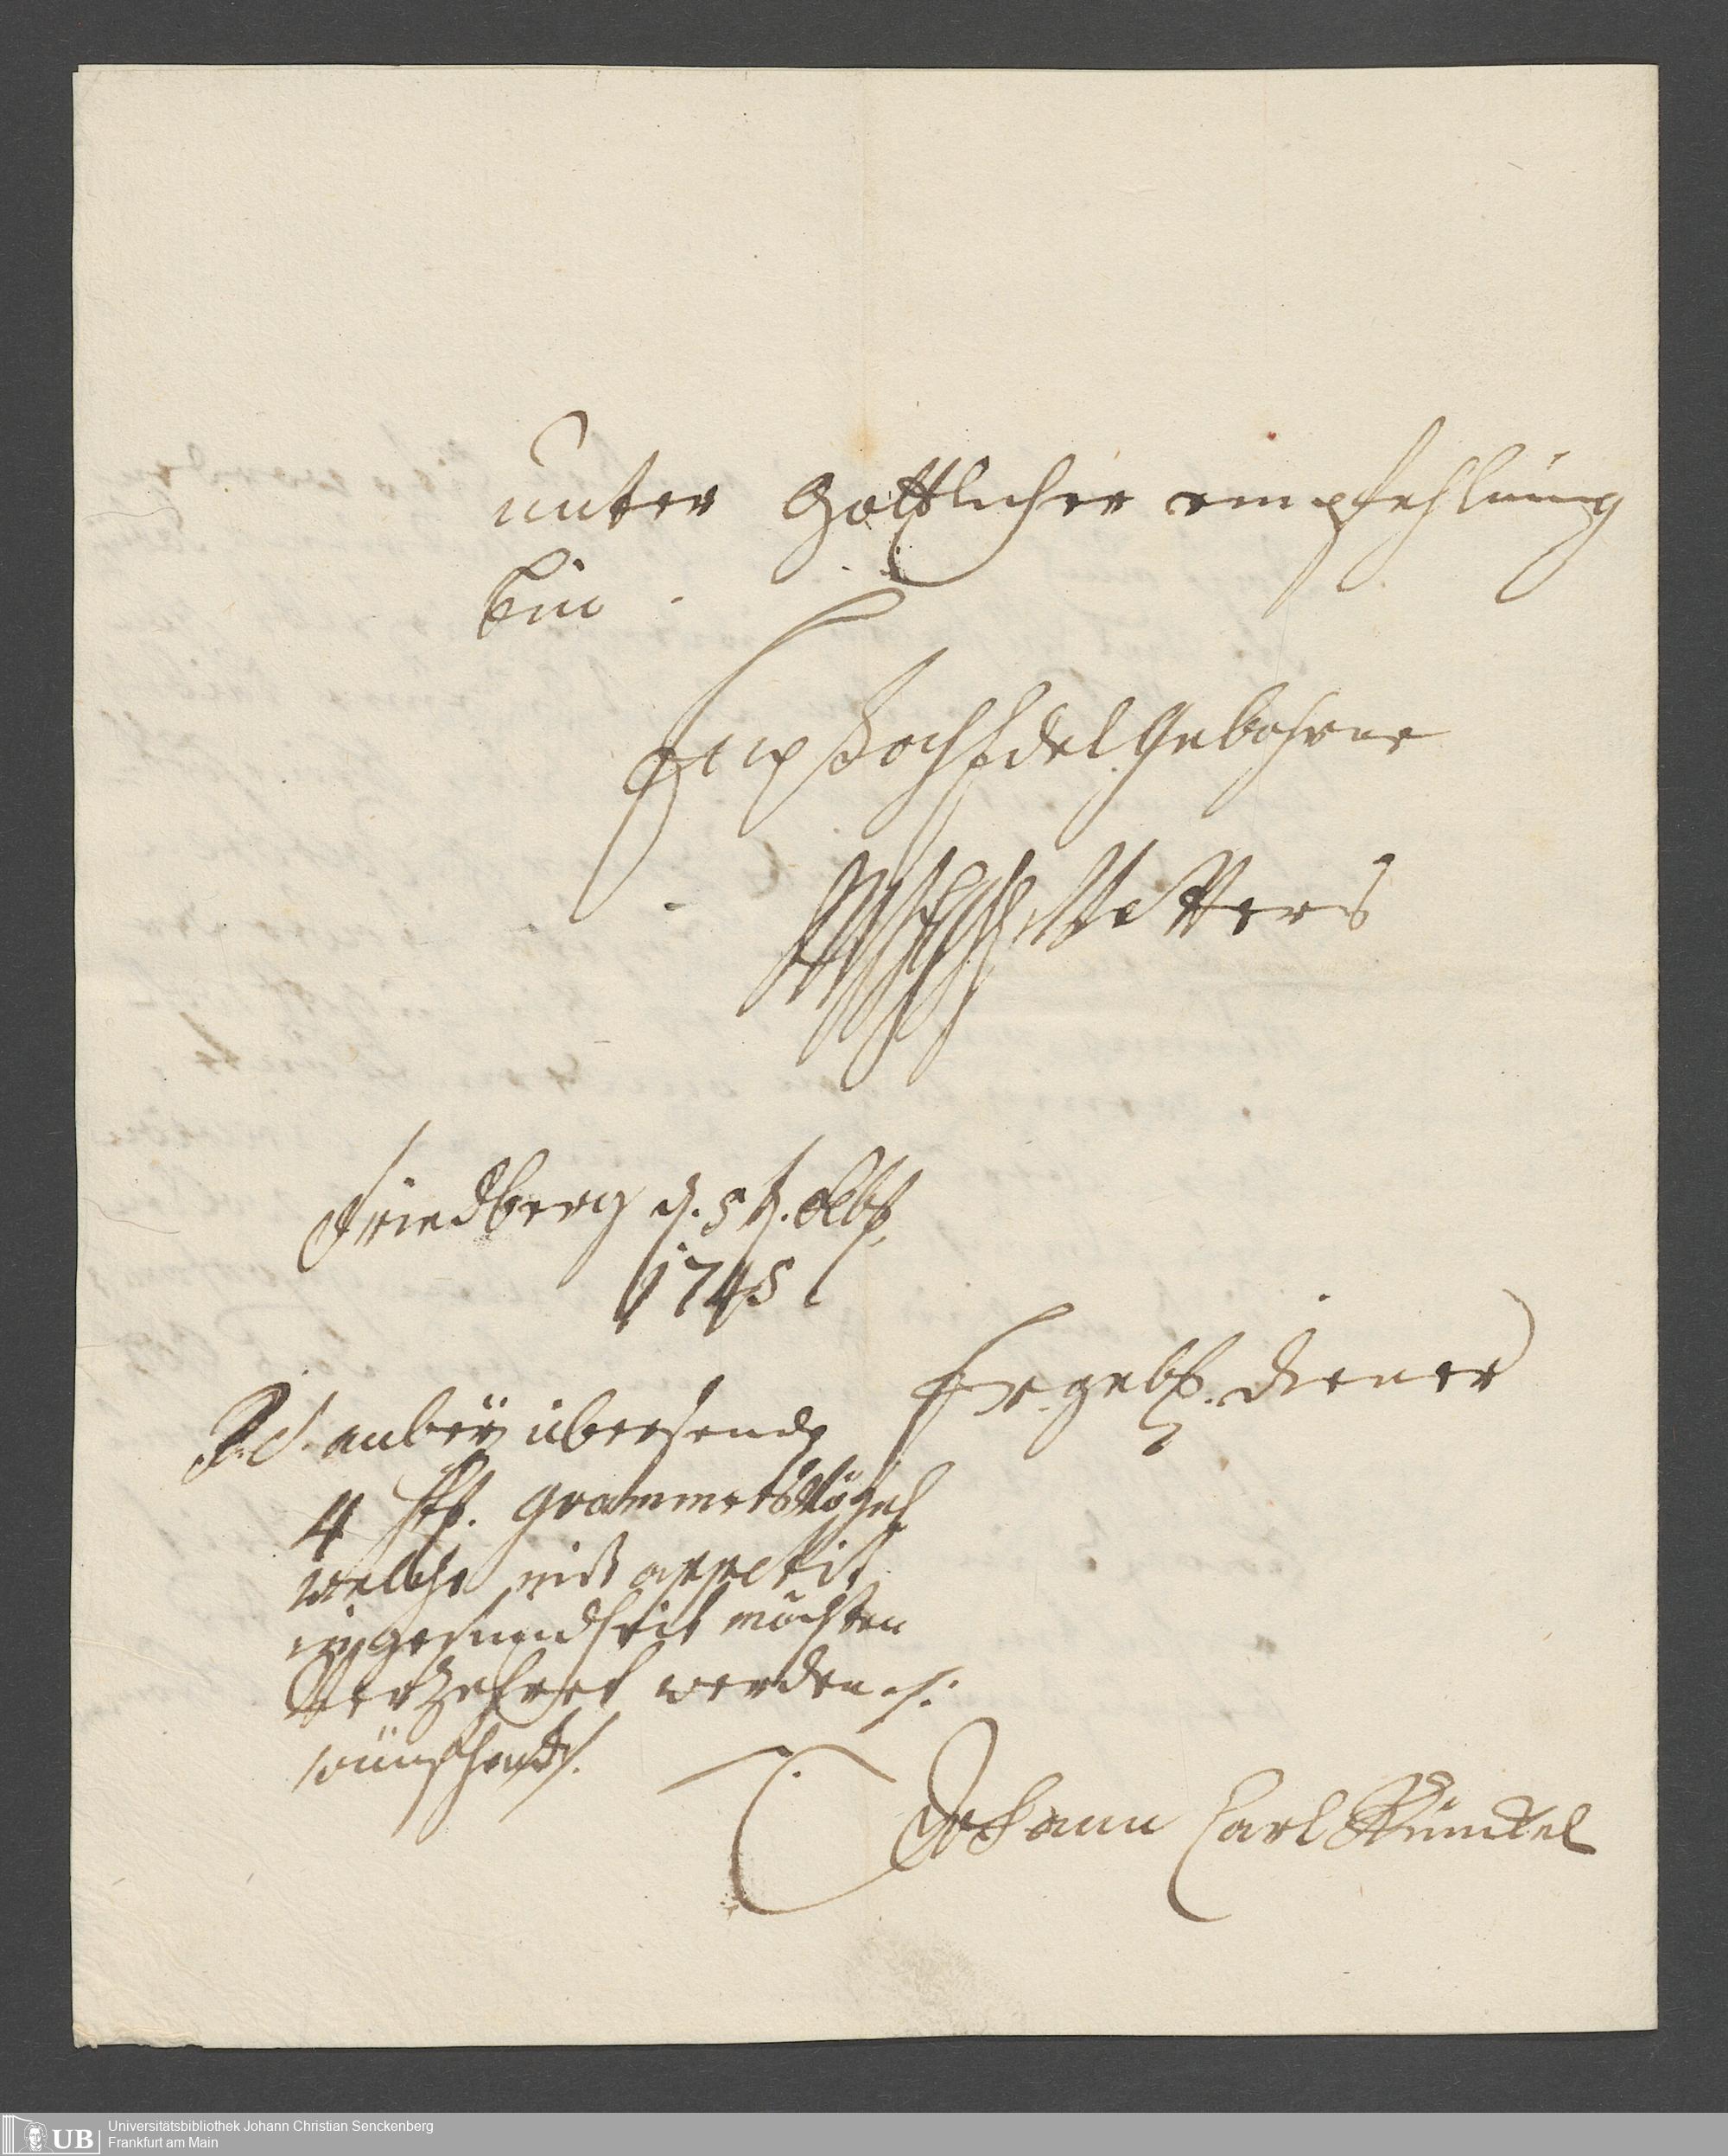 unter Göttlicher empfehlung
bin
Ew HochEdel Gebohrne
Vetters
Friedberg d. 5t. 8bt.
1745
Ergebst. diener
P.S. anbey übersende
4 st. grammetsvögel
welche mit appetit
in gesundheit möchten
Verzehret werden /:
wünschend /.
Johann Carl Künckel
UB Universitätsbibliothek Johann Christian Senckenberg
Frankfurt am Main